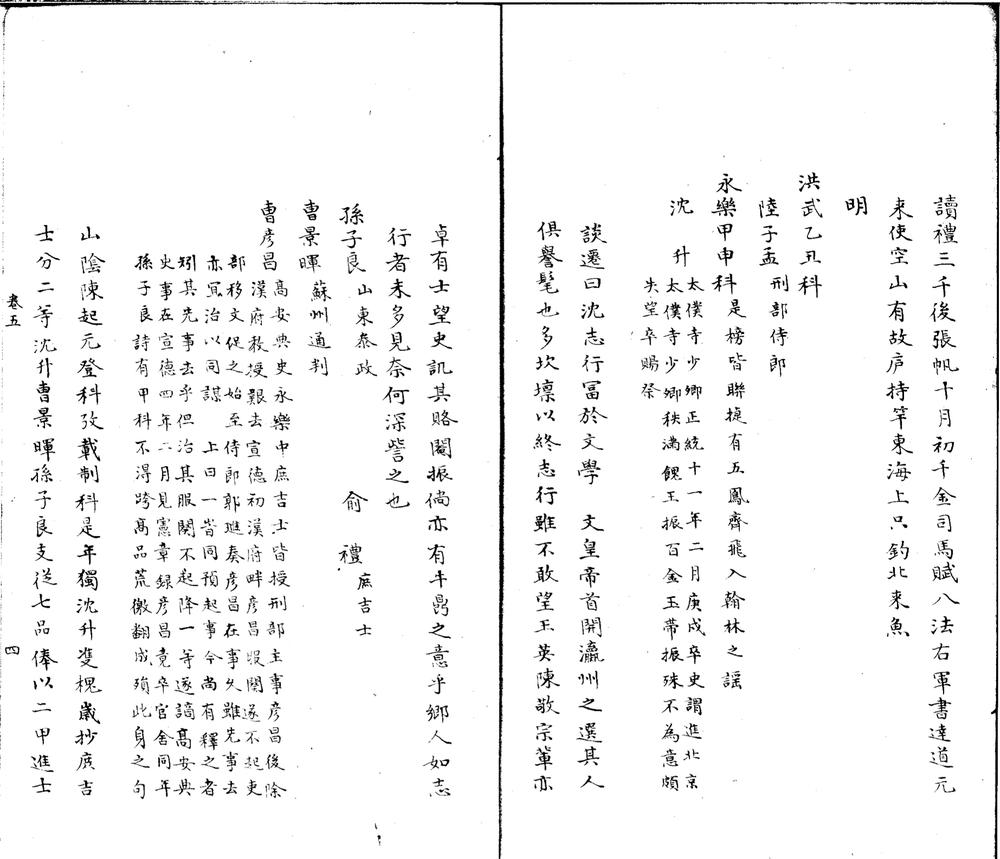 讀禮三千後張帆十月初千金司馬賦八法右軍書達道元
来使空山有故庐持竿東海上只釣北来魚
明
洪武乙丑科
陸子孟 刑部侍郎
永樂甲申科 是榜皆聯捷有五鳳齊飛入翰林之謡
沈 升 太僕寺少卿正統十一年二月庚戍卒史謂進北京
太僕寺少卿秩满餽王振百金玉帶振殊不為意頗
失望卒賜祭
談遷曰沈志行冨於文學 文皇帝首開瀛州之選其人
俱譽髦也多坎壈以終志行雖不敢望王英陳敬宗軰亦
卓有士望史訊其賂閹振倘亦有牛暠之意乎鄉人如志
行者未多見奈何深訾之也
孫子良 山東叅政 俞 禮 庶吉士
曹景暉 蘇州通判
曹彦昌 髙安典史永樂中庶吉士皆授刑部主事彦昌後除
漢府教授艱去宣德初漢府畔彦昌暇闋遂不起吏
部移文促之始至侍郎郭璡奏彦昌在事久雖先事去
亦冝治以同謀 上曰一皆同預起事今尚有釋之者
矧其先事去乎但治其服闋不起降一等遂謫髙安典
史事在宣德四年二月見憲章録彦昌竟卒官舍同年
孫子良詩有甲科不淂跨髙品荒徼翻成殞此身之句
山陰陳起元登科攷載制科是年獨沈升㕠槐嵗抄庻吉
士分二等沈升曹景暉孫子良支従七品俸以二甲進士
卷五
四